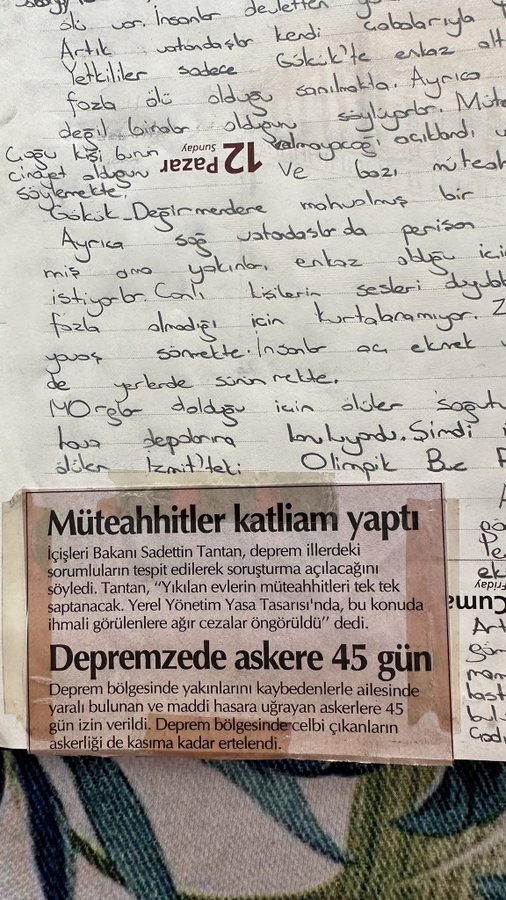 ölü var. İnsanlar devletten
Artık vatandaşlar kendi çabalarıyla
Yetkililer sadece Gölcük'te enkaz alt
fazla ölü olduğu sanılmakta. Ayrıca
değil binalar olduğunu söylüyorlar. Müte
Çoğu kişi bunun
cinayet olduğunu
söylemekte.
12 Pazar
Sunday
kalmayacağı açıklandı
ve bazı müteah
Gölcük Değirmendere mahvolmuş bir
Ayrıca sağ vatandaşlar da perişan
miş ama yakınları enkaz olduğu için
istiyorlar. Canlı kişilerin sesleri duyulu
fazla olmadığı için kurtarılanamıyor.
yavaş sönmekte. İnsanlar acı ekmek
de yerlerde sürünmekte.
Morglar dolduğu için ölüler soğuk
hava depolarına konuluyordu. Şimdi
ölüler İzmit'teki Olimpik Buz
Müteahhitler katliam yaptı
İçişleri Bakanı Sadettin Tantan, deprem illerdeki
sorumluların tespit edilerek soruşturma açılacağını
söyledi. Tantan, "Yıkılan evlerin müteahhitleri tek tek
saptanacak. Yerel Yönetim Yasa Tasarısı'nda, bu konuda
ihmali görülenlere ağır cezalar öngörüldü" dedi.
Depremzede askere 45 gün
Deprem bölgesinde yakınlarını kaybedenlerle ailesinde
yaralı bulunan ve maddi hasara uğrayan askerlere 45
gün izin verildi. Deprem bölgesinde celbi çıkanların
askerliği de kasıma kadar ertelendi.
Friday
Cuma
Art